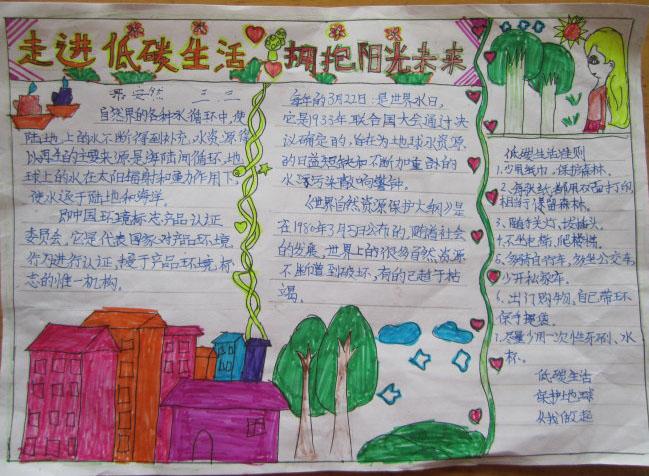 走进低碳生活 拥抱阳光未来
梁安然 三.二
自然界的各种水循环中,使
陆地上的水不断得到补充,水资源得
以再生的主要来源是海陆间循环,地
球上的水在太阳辐射和重力作用下,
使水返于陆地和海洋。
即中国环境标志产品认证
委员会,它是代表国家对产品环境
行为进行认证,授于产品环境标
志的惟一机构。
每年的3月22日是世界水日,
它是1933年联合国大会通过决
议确定的,旨在为地球水资源
的日益短缺和不断加重的
水源污染敲响警钟。
《世界自然资源保护大纲》是
在1980年3月5日公布的,随着社会
的发展,世界上的很多自然资源
不断遭到破坏,有的已趋于枯
竭。
低碳生活准则
1.少用纸巾,保护森林。
2.每张纸都用双面打印,
相当于保留森林。
3.随手关灯、拔插头。
4.不坐电梯,爬楼梯。
5.多骑自行车,多坐公交车,
少开私家车。
6.出门购物,自己带环
保手提袋。
7.尽量少用一次性牙刷、水
杯。
低碳生活
保护地球
从我做起